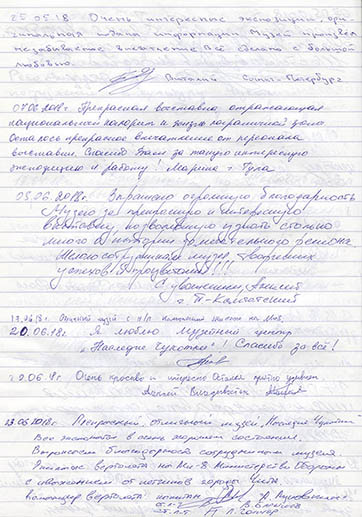 25.05.18. Очень интересные экспозиции, ори-
гинальная подача информации. Музей произвел
незабываемое впечатление. Всё сделано с большой
любовью.
Виталий Санкт-Петербург
07.06.2018г. Прекрасная выставка, отражающая
национальный колорит и жизнь пограничной зоны.
Осталось прекрасное впечатление от персонала
выставки. Спасибо Вам за такую интересную
экспозицию и работу! Марина г. Тула
05.06.2018г. Выражаю огромную благодарность
Музею за прекрасную и интересную
выставку, позволившую узнать столько
много о истории замечательного региона
Желаю сотрудникам музея творческих
успехов! И процветания!!!
С уважением, Анатолий
г. П-Камчатский
13.06.18г. Отличный музей
20.06.18г. Я люблю музейный центр
"Наследие Чукотки"! Спасибо за всё!
20.06.18г Очень красиво и интересно Остались приятно удивлены
23.06.2018г. Прекрасный отличный музей "Наследие Чукотки"
Все экспонаты в очень хорошем состоянии.
Выражаем благодарность сотрудникам музея
Экипаж вертолета Ми-8 Министерства Обороны
с уважением от летчиков города Чита
командир вертолета капитан